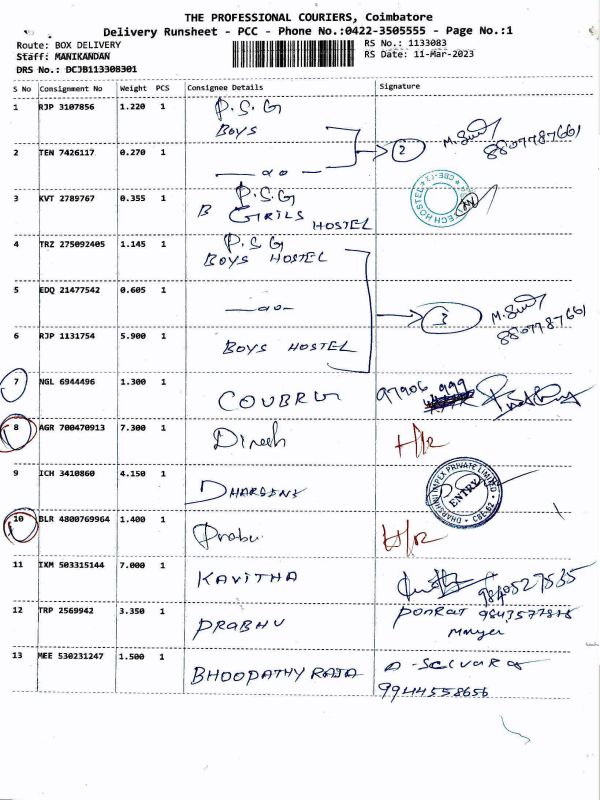 THE PROFESSIONAL COURIERS, Coimbatore
Delivery Runsheet - PCC - Phone No.:0422-3505555 - Page No.:1
Route: BOX DELIVERY
RS No.: 1133083
Staff: MANIKANDAN
RS Date: 11-Mar-2023
DRS No.: DCJB113308301
S No Consignment No Weight PCS Consignee Details Signature
1 RJP 3107856 1.220 1 P.S.G
BOYS
2 TEN 7426117 0.270 1 —do—
2
8807787661
3 KVT 2789767 0.355 1 P.S.G
GIRLS HOSTEL
4 TRZ 275092405 1.145 1 P.S.G
BOYS HOSTEL
5 EDQ 21477542 0.605 1 —do—
3
8807787661
6 RJP 1131754 5.900 1 BOYS HOSTEL
7 NGL 6944496 1.300 1
97906 999
8 AGR 700470913 7.300 1 Dinesh
9 ICH 3410860 4.150 1
DHARSHINI IMPEX PRIVATE LIMITED
ENTRY
CBE-62
10 BLR 4800769964 1.400 1 Prabu
11 IXM 503315144 7.000 1 KAVITHA
9840527535
12 TRP 2569942 3.350 1 PRABHU
13 MEE 530231247 1.500 1 BHOOPATHY RAJA
9944558656